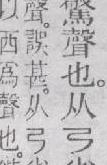 驚聲也。从弓
聲。誤甚。从弓省
以西爲聲也。